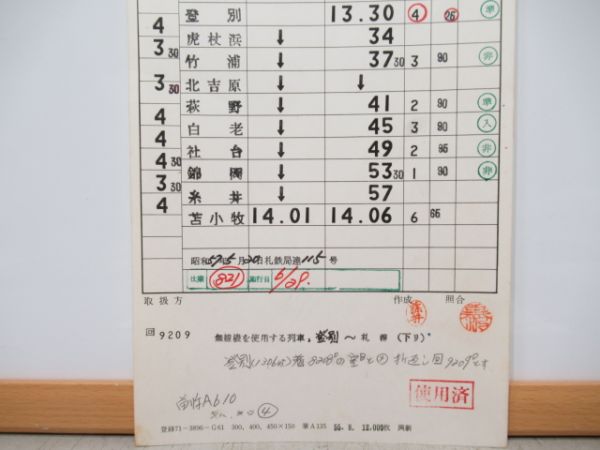 登別 13.30 ④ 25 準
4
虎杖浜 ↓ 34
3 30
竹浦 ↓ 37 30 3 90 非
北吉原 ↓ ↓
3 30
萩野 ↓ 41 2 90 準
4
白老 ↓ 45 3 90 入
4
社台 ↓ 49 2 95 非
4 30
錦岡 ↓ 53 30 1 90 非
3 30
糸井 ↓ 57
4
苫小牧 14.01 14.06 6 65
昭和57年5月20日札鉄局達115号
出庫 821 施行日 6/29.
取扱方 作成 照合
回9209 無線機を使用する列車, 登別〜札幌 (下り)
使用済
苗穂A610
④
登録71-3896-G61 300, 400, 450×150 筆A135 56. 8. 12,000枚 興新